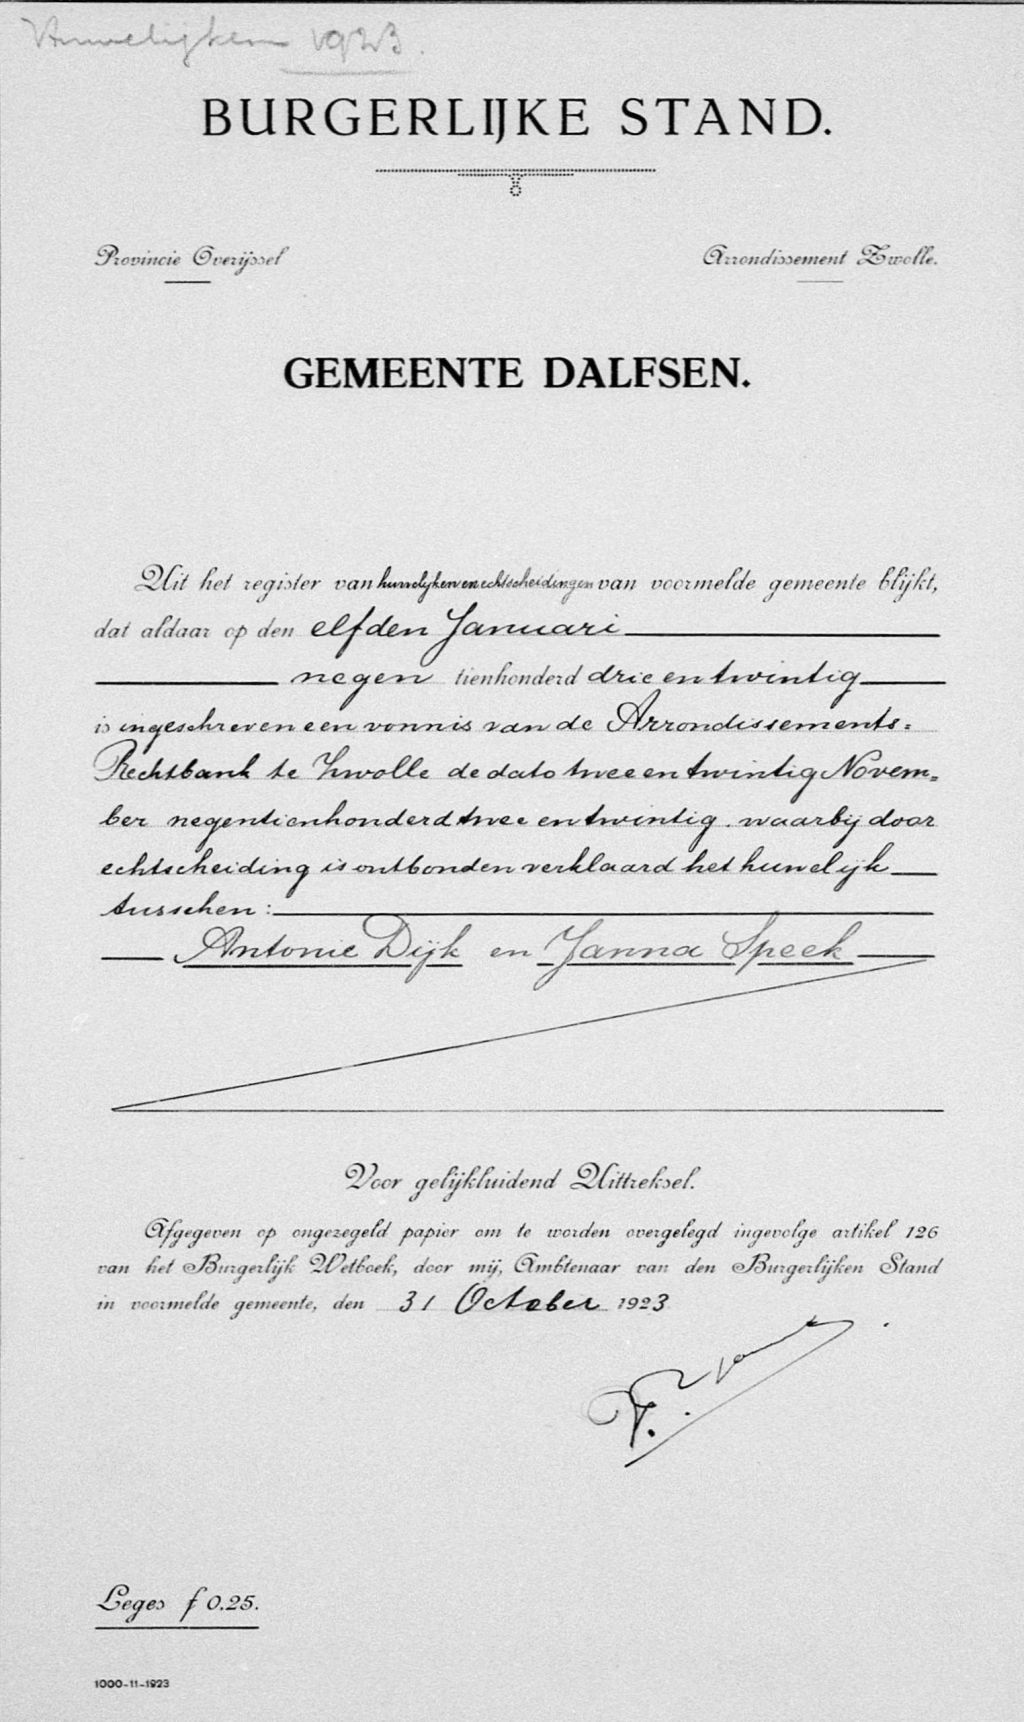 Huwelijken 1923.
BURGERLIJKE STAND.
Provincie Overijssel
Arrondissement Zwolle.
GEMEENTE DALFSEN.
Uit het register van huwelijken en echtscheidingen van voormelde gemeente blijkt,
dat aldaar op den elfden Januari
negen tienhonderd drie en twintig
is ingeschreven een vonnis van de Arrondissements=
Rechtbank te Zwolle de dato twee en twintig Novem=
ber negentienhonderd twee en twintig, waarbij door
echtscheiding is ontbonden verklaard het huwelijk
tusschen:
Antonie Dijk en Janna Speek
Voor gelijkluidend Uittreksel.
Afgegeven op ongezegeld papier om te worden overgelegd ingevolge artikel 126
van het Burgerlijk Wetboek, door mij, Ambtenaar van den Burgerlijken Stand
in voormelde gemeente, den 31 October 1923
Leges f 0.25.
1000-11-1923